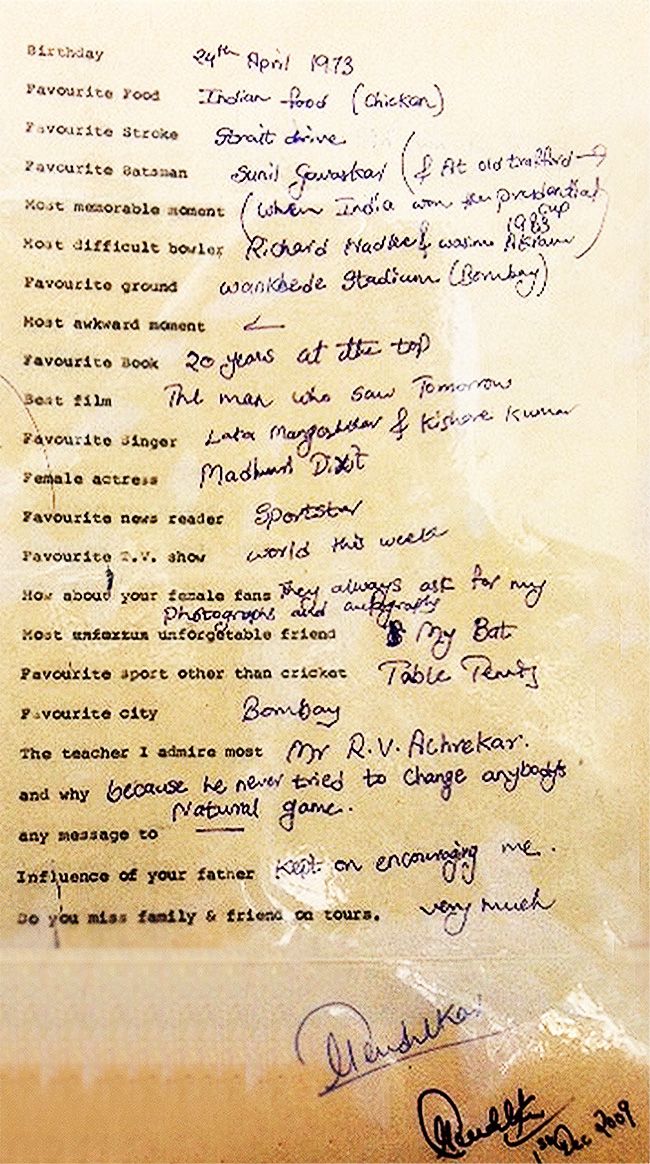 Birthday 24th April 1973
Favourite Food Indian food (Chicken)
Favourite Stroke Strait drive
Favourite Batsman Sunil Gavaskar (& At old trafford →
Most memorable moment (When India won the prudential cup 1983)
Most difficult bowler Richard Hadlee & wasim Akram
Favourite ground wankhede Stadium (Bombay)
Most awkward moment ←
Favourite Book 20 years at the top
Best film The man who saw Tomorrow
Favourite Singer Lata Mangeshkar & Kishore Kumar
Female actress Madhuri Dixit
Favourite news reader Sportstar
Favourite T.V. show world this week
How about your female fans They always ask for my
photographs and autographs
Most unfoxtun unforgetable friend My Bat
Favourite sport other than cricket Table Tennis
Favourite city Bombay
The teacher I admire most Mr R.V. Achrekar.
and why because he never tried to change anybody's
Natural game.
any message to —
Influence of your father Kept on encouraging me.
Do you miss family & friend on tours. very much
Dec 2009